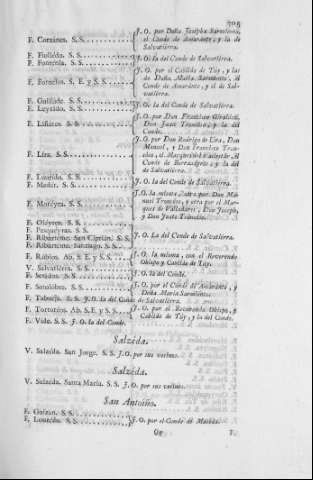 705
F. Corzánes. S. S. J. O. por Doña Josepha Sarmiento, el Conde de Amarante, y la de Salvatierra.
F. Fiolledo. S. S. J. O. la del Conde de Salvatierra.
F. Fontenla. S. S.
F. Fornelos. S. E. y S. S. J. O. por el Cabildo de Tuy, y las de Doña María Sarmiento, el Conde de Amarante, y el de Salvatierra.
F. Guillade. S. S. J. O. la del Conde de Salvatierra.
F. Leyrado. S. S.
F. Liñares. S. S. J. O. por Don Francisco Giraldez, Don Juan Troncoso, y la del Conde.
F. Lira. S. S. J. O. por Don Rodrigo de Lira, Don Manuel, y Don Francisco Troncoso, el Marqués de Valladares, el Conde de y la del de Salvatierra.
F. Lourido. S. S. J. O. la del Conde de Salvatierra.
F. Meder. S. S.
F. Moréyra. S. S. J. O. la misma, otra por Don Manuel Troncoso, y otra por el Marqués de Valladares, Don Joseph, y Don Justo Troncoso.
F. Oleyros. S. S.
F. Pesqueyras. S. S.
F. Ribartéme. San Ciprián. S. S. J. O. La del Conde de Salvatierra.
F. Ribartéme. Santiago. S. S.
F. Rubios. Ab. S. E. y S. S. J. O. la misma, con el Reverendo Obispo y Cabildo de Tuy.
V. Salvatierra. S. S.
F. Setados. S. S. J. O. la del Conde.
F. Sotolobre. S. S. J. O. por el Conde de Amarante, y Doña María Sarmiento.
F. Taboeja. S. S. J. O. la del Conde de Salvatierra.
F. Tortoréos. Ab. S. E. y S. S. J. O. por el Reverendo Obispo, y Cabildo de Tuy, y la del Conde.
F. Vide. S. S. J. O. la del Conde.
Salzéda.
V. Salzéda. San Jorge. S. S. J. O. por sus vecinos.
Salzéda.
V. Salzéda. Santa María. S. S. J. O. por sus vecinos.
San Antoíño.
F. Goizán. S. S.
F. Louredo. S. S. J. O. por el Conde de Maceda.
F.